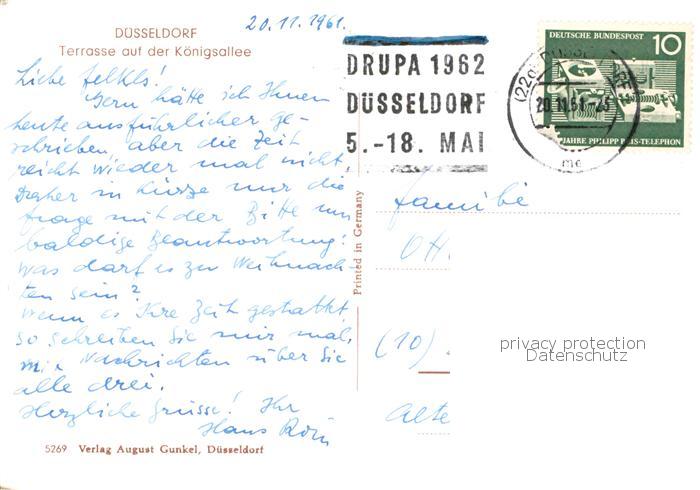 20.11.1961.
DÜSSELDORF
Terrasse auf der Königsallee
Liebe Felkls!
Gern hätte ich Ihnen
heute ausführlicher ge-
schrieben aber die Zeit
reicht wieder mal nicht.
Daher in Kürze nur die
Frage mit der Bitte um
baldige Beantwortung:
Was darf es zu Weihnach-
ten sein?
Wenn es Ihre Zeit gestattet,
so schreiben Sie mir mal,
mit Nachrichten über Sie
alle drei.
Herzliche Grüsse! Ihr
Hans
5269 Verlag August Gunkel, Düsseldorf
Printed in Germany
DRUPA 1962
DÜSSELDORF
5.-18. MAI
DEUTSCHE BUNDESPOST
10
JAHRE PHILIPP REIS-TELEPHON
20.11.61
me
Familie
(10)
Alte
privacy protection
Datenschutz